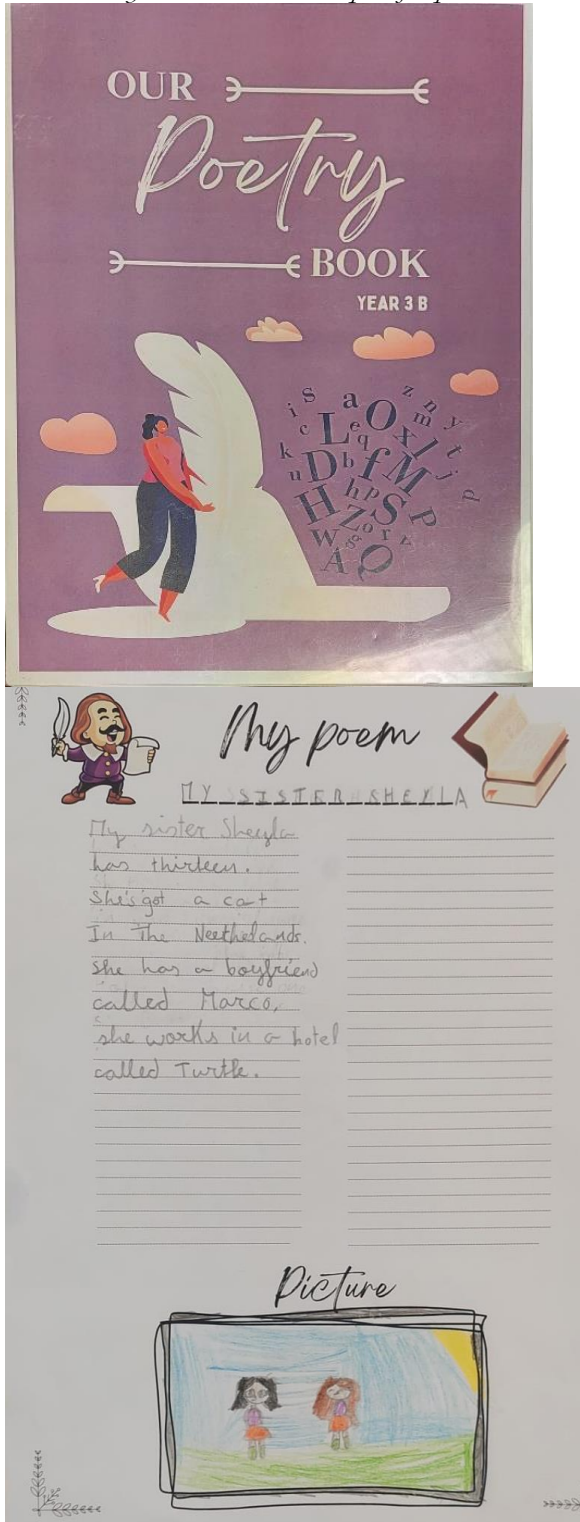 OUR
Poetry
BOOK
YEAR 3 B
My poem
MY SISTER SHEYLA
My sister Sheyla
has thirteen.
She's got a cat
In The Neethelands.
she has a boyfriend
called Marco,
she works in a hotel
called Turtle.
Picture